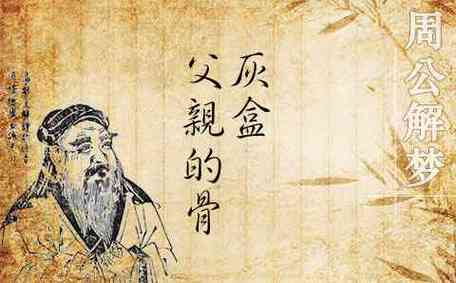 周公解梦
父親的骨
灰盒